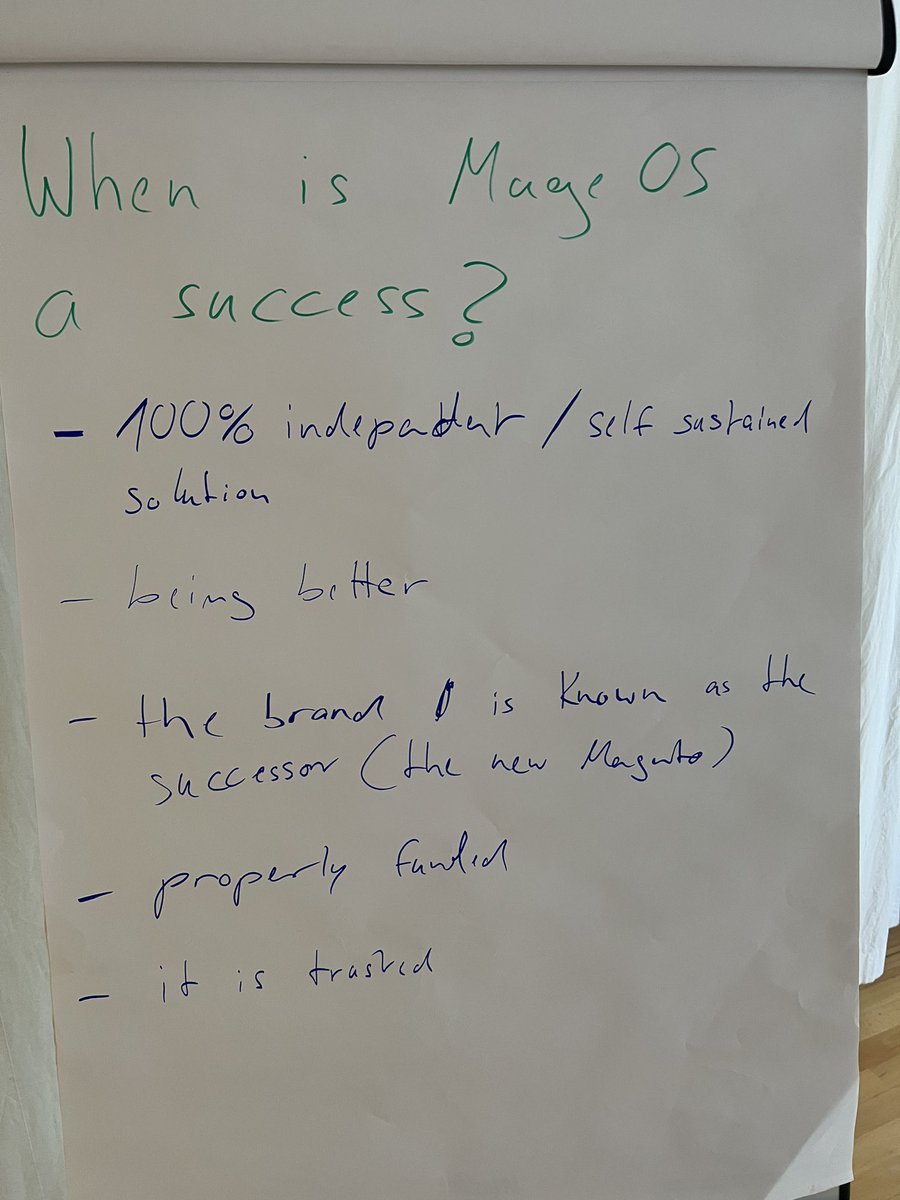 When is Mage OS
a success?
- 100% independent / self sustained
solution
- being better
- the brand is known as the
successor (the new Magento)
- properly funded
- it is trusted